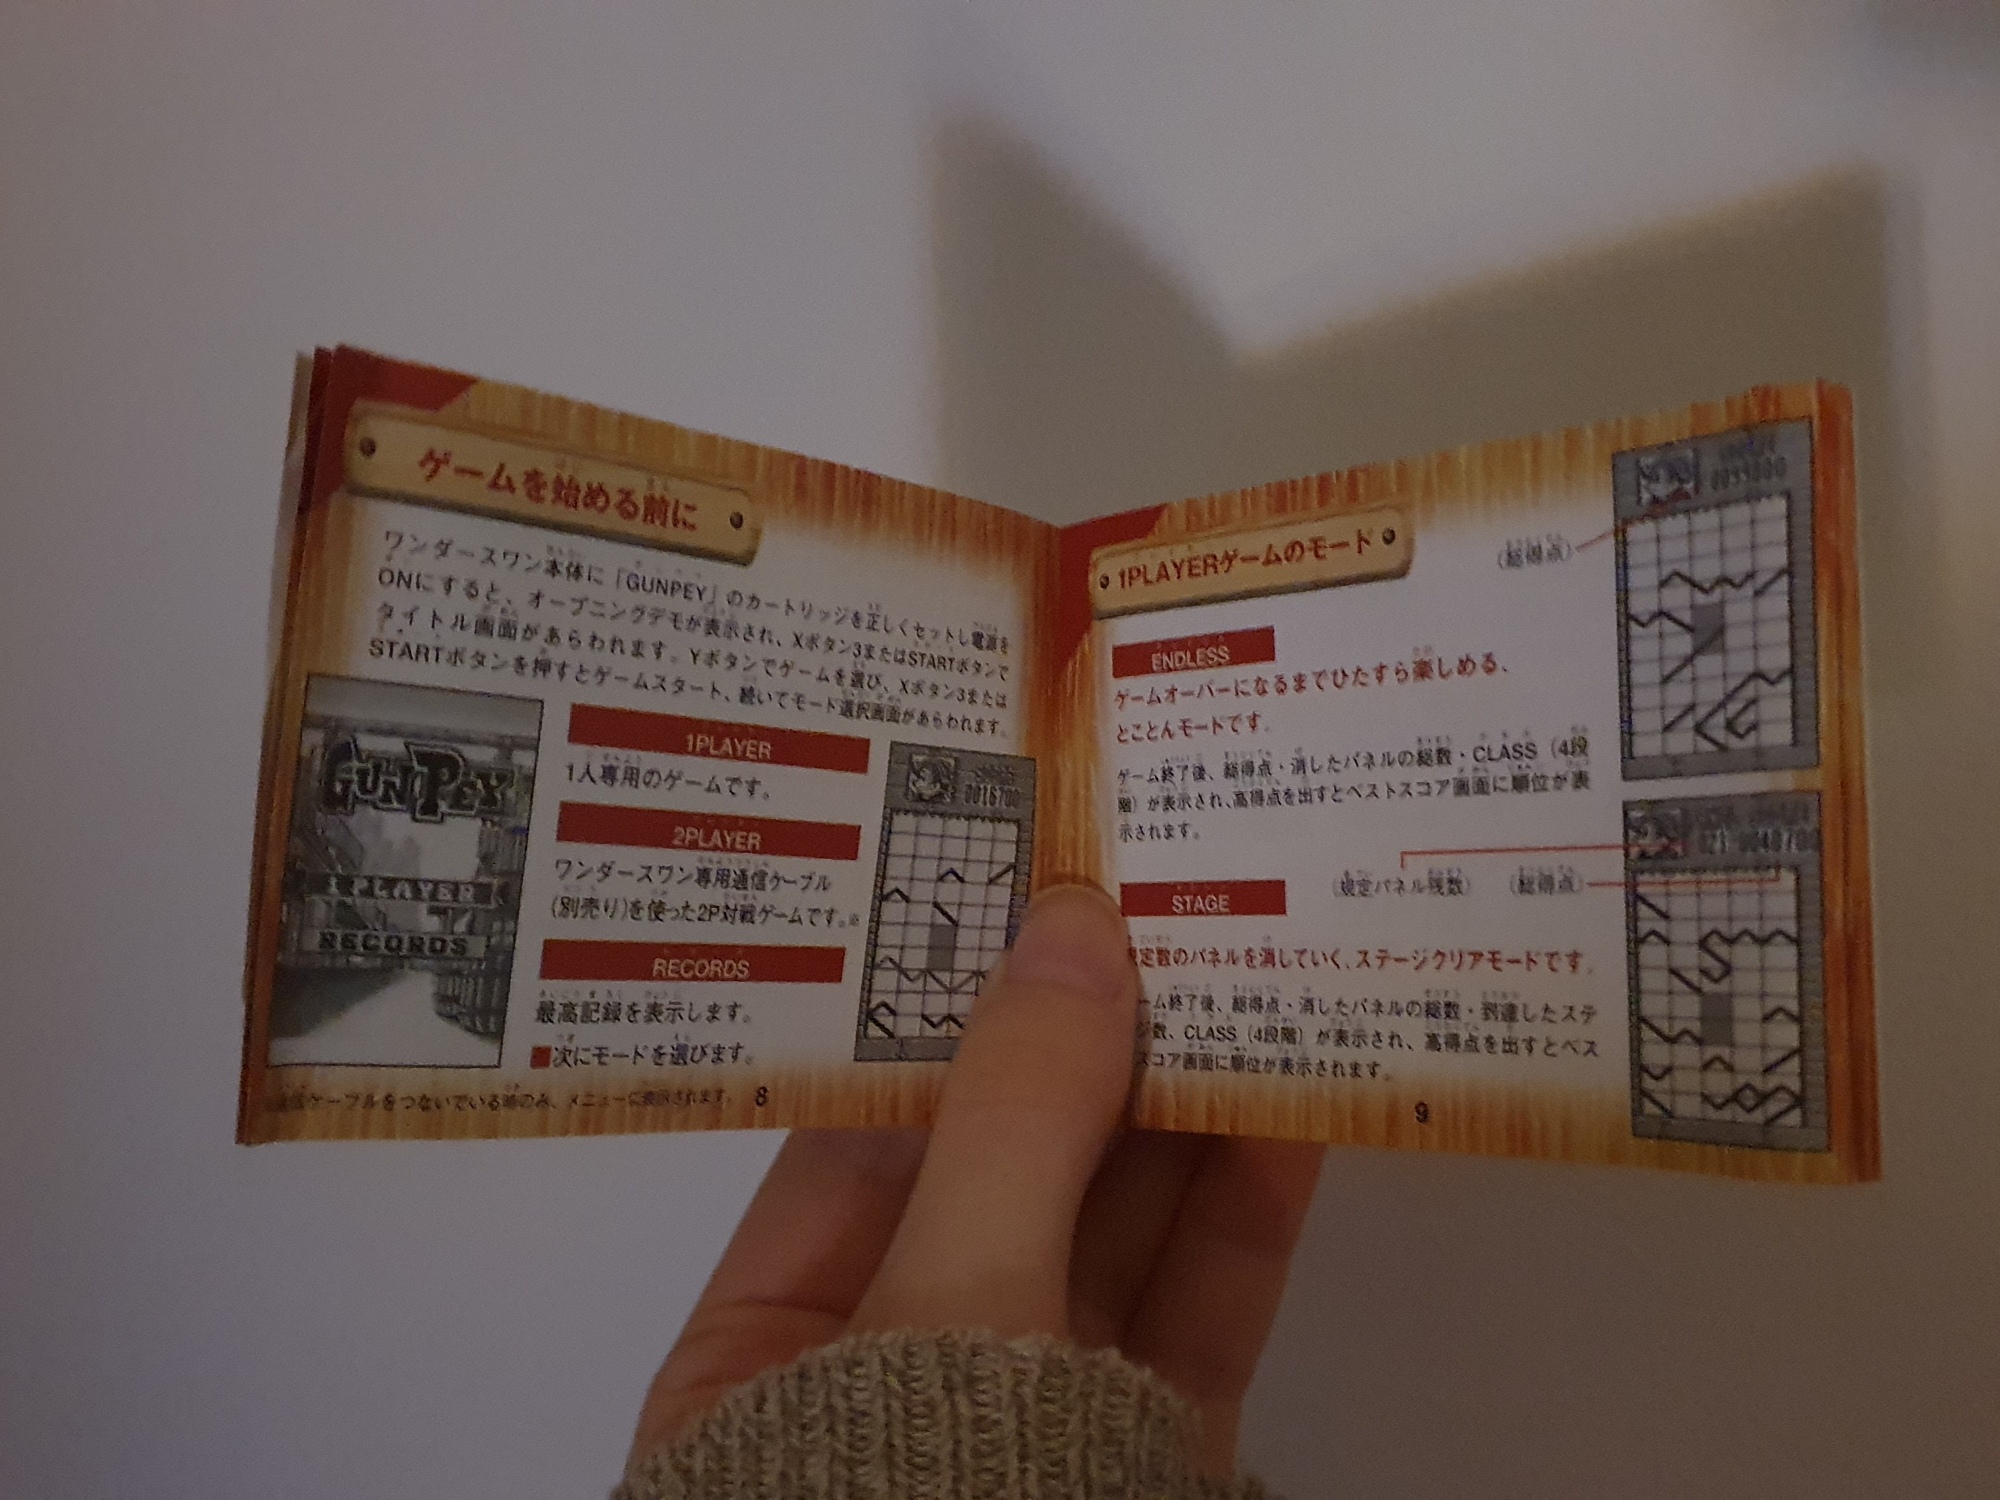 ゲームを始める前に
ワンダースワン本体に「GUNPEY」のカートリッジを正しくセットし電源を
ONにすると、オープニングデモが表示され、Xボタン3またはSTARTボタンで
タイトル画面があらわれます。Yボタンでゲームを選び、Xボタン3または
STARTボタンを押すとゲームスタート、続いてモード選択画面があらわれます。
GUNPEY
1 PLAYER
RECORDS
1PLAYER
1人専用のゲームです。
2PLAYER
ワンダースワン専用通信ケーブル
(別売り)を使った2P対戦ゲームです。※
RECORDS
最高記録を表示します。
■次にモードを選びます。
0016700
ケーブルをつないでいる時のみ、メニューに表示されます。
8
1PLAYERゲームのモード
ENDLESS
ゲームオーバーになるまでひたすら楽しめる、
とことんモードです。
ゲーム終了後、総得点・消したパネルの総数・CLASS（4段
階）が表示され、高得点を出すとベストスコア画面に順位が表
示されます。
（総得点）
STAGE
定数のパネルを消していく、ステージクリアモードです。
ーム終了後、総得点・消したパネルの総数・到達したステ
ジ数、CLASS（4段階）が表示され、高得点を出すとベス
スコア画面に順位が表示されます。
（規定パネル残数）
（総得点）
9